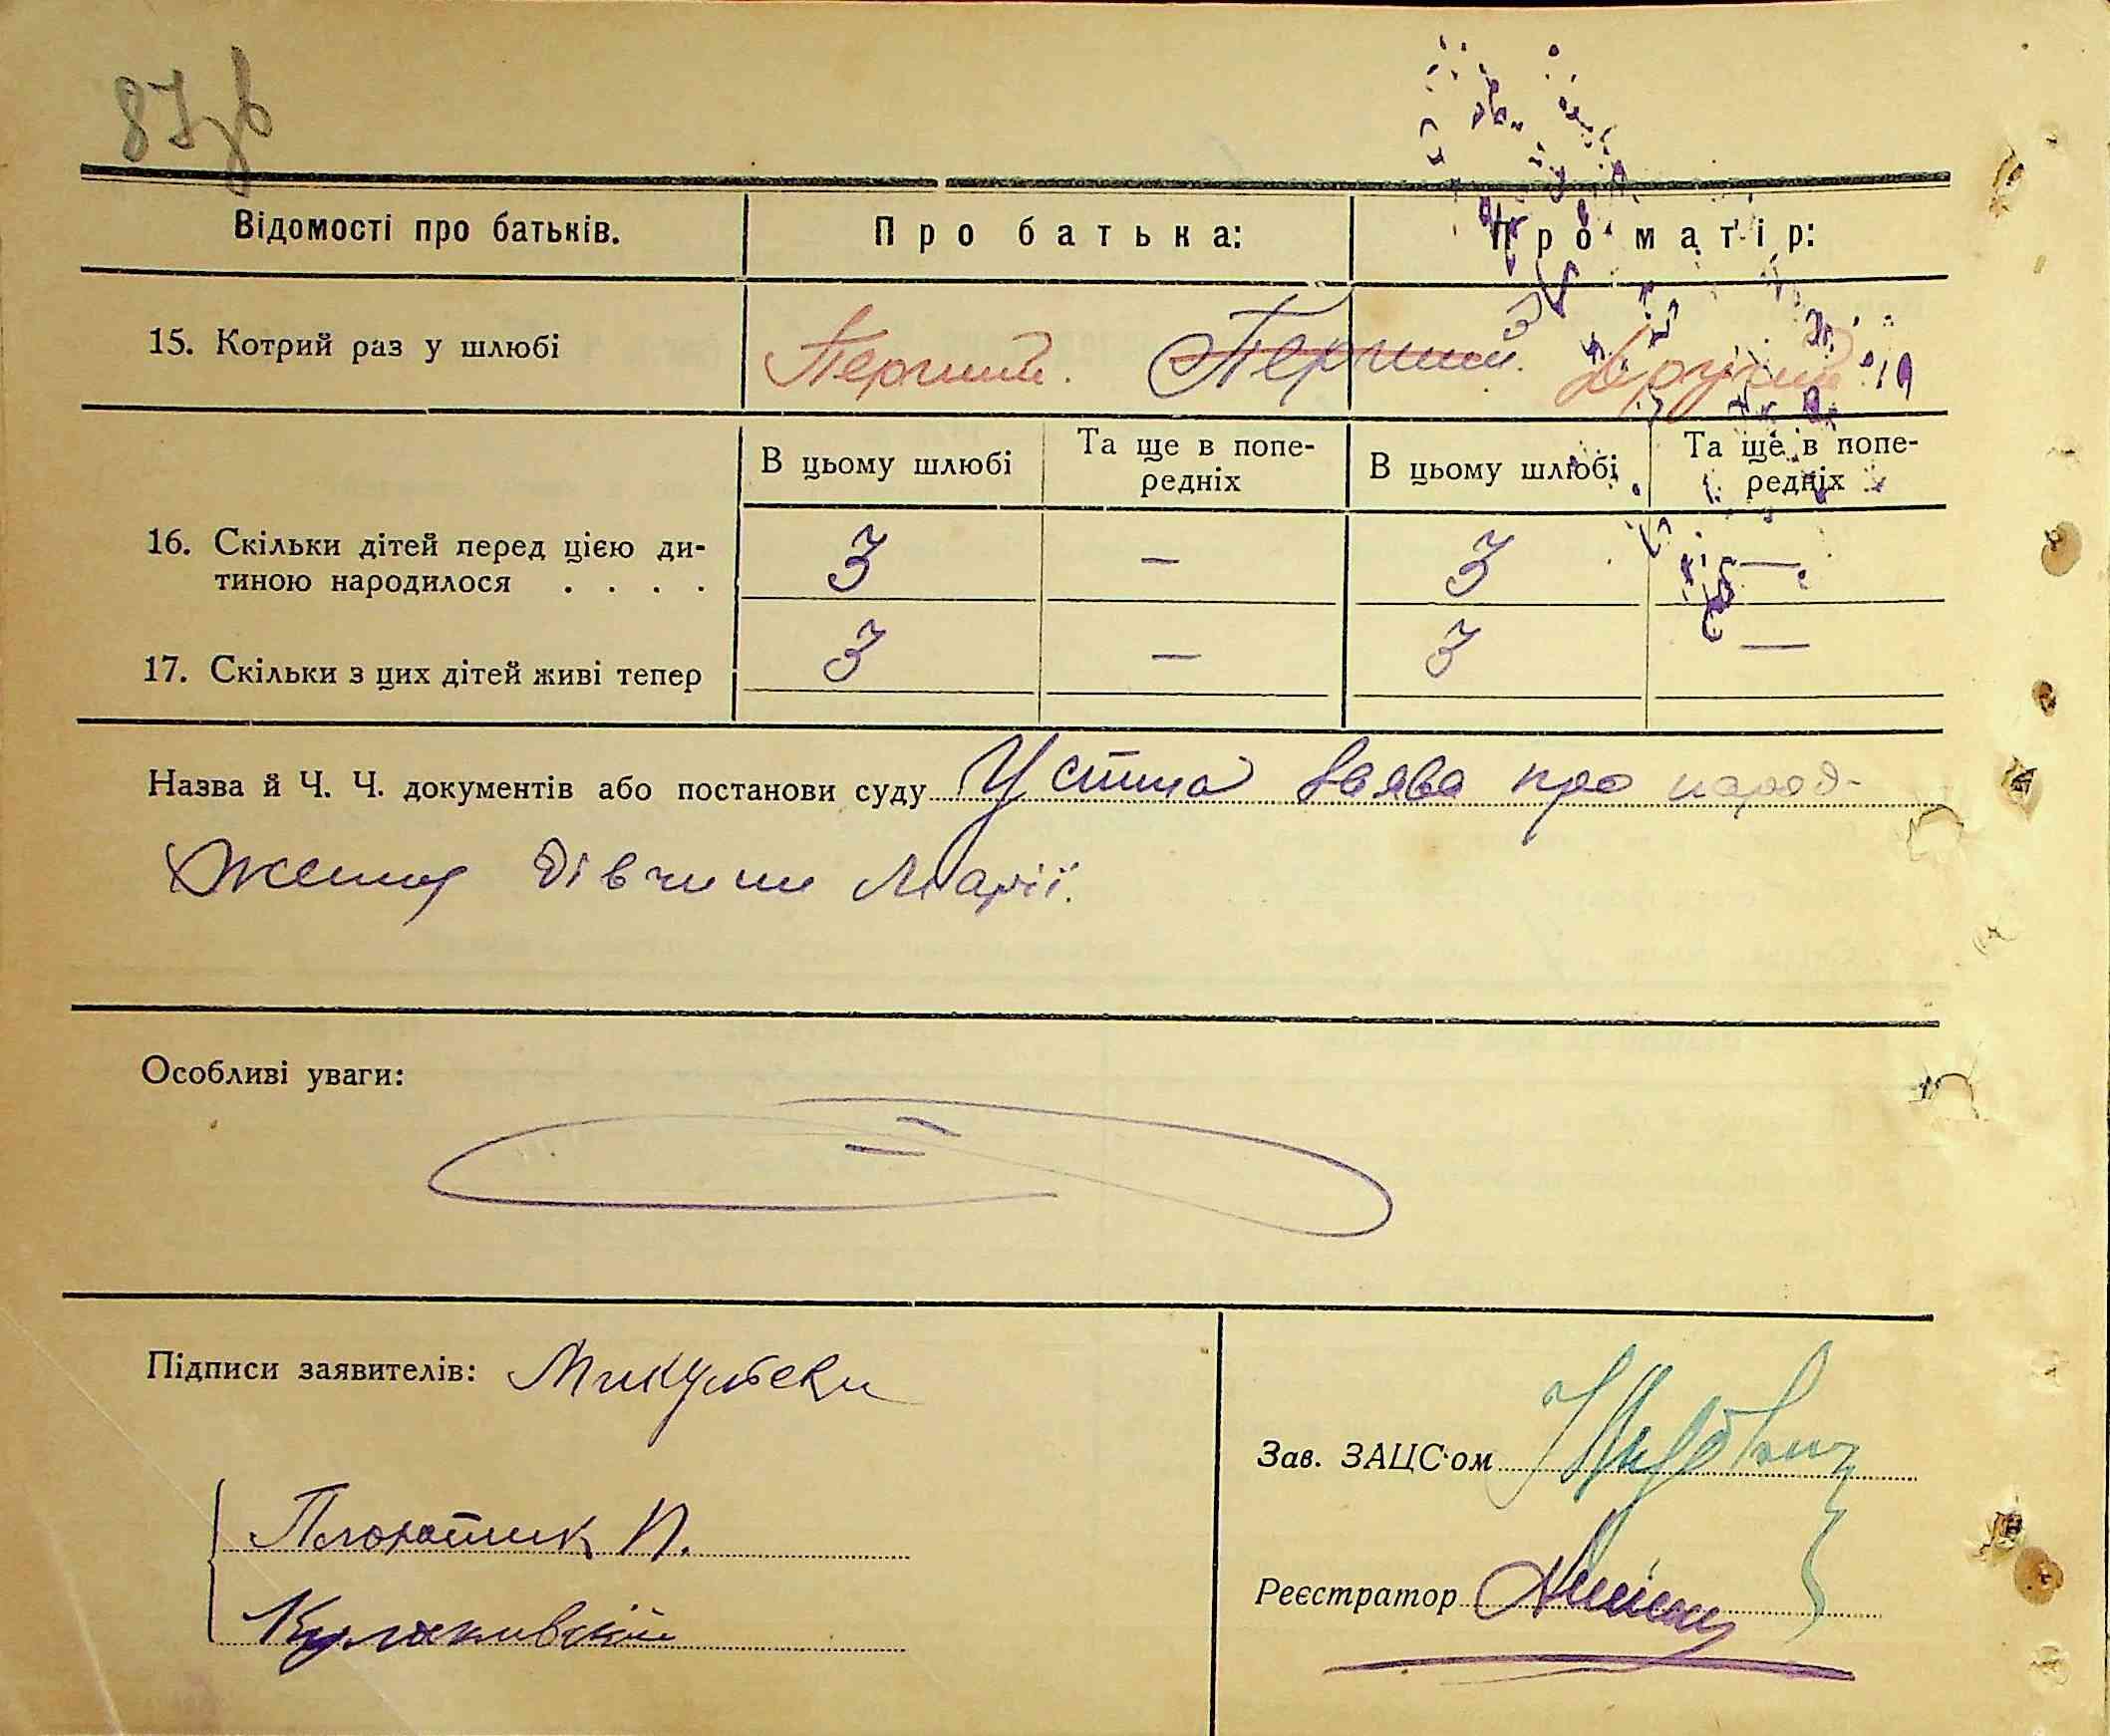 87зв
Відомості про батьків. Про батька: Про матір:
15. Котрий раз у шлюбі Перший. Перший. Другий
В цьому шлюбі Та ще в попе- В цьому шлюбі Та ще в попе-
редніх редніх
16. Скільки дітей перед цією ди- 3 — 3 —
тиною народилося . . . .
17. Скільки з цих дітей живі тепер 3 — 3 —
Назва й Ч. Ч. документів або постанови суду Устна заява про народ-
ження дівчини Марії.
Особливі уваги:
Підписи заявителів:
Зав. ЗАЦС'ом
П.
Реєстратор